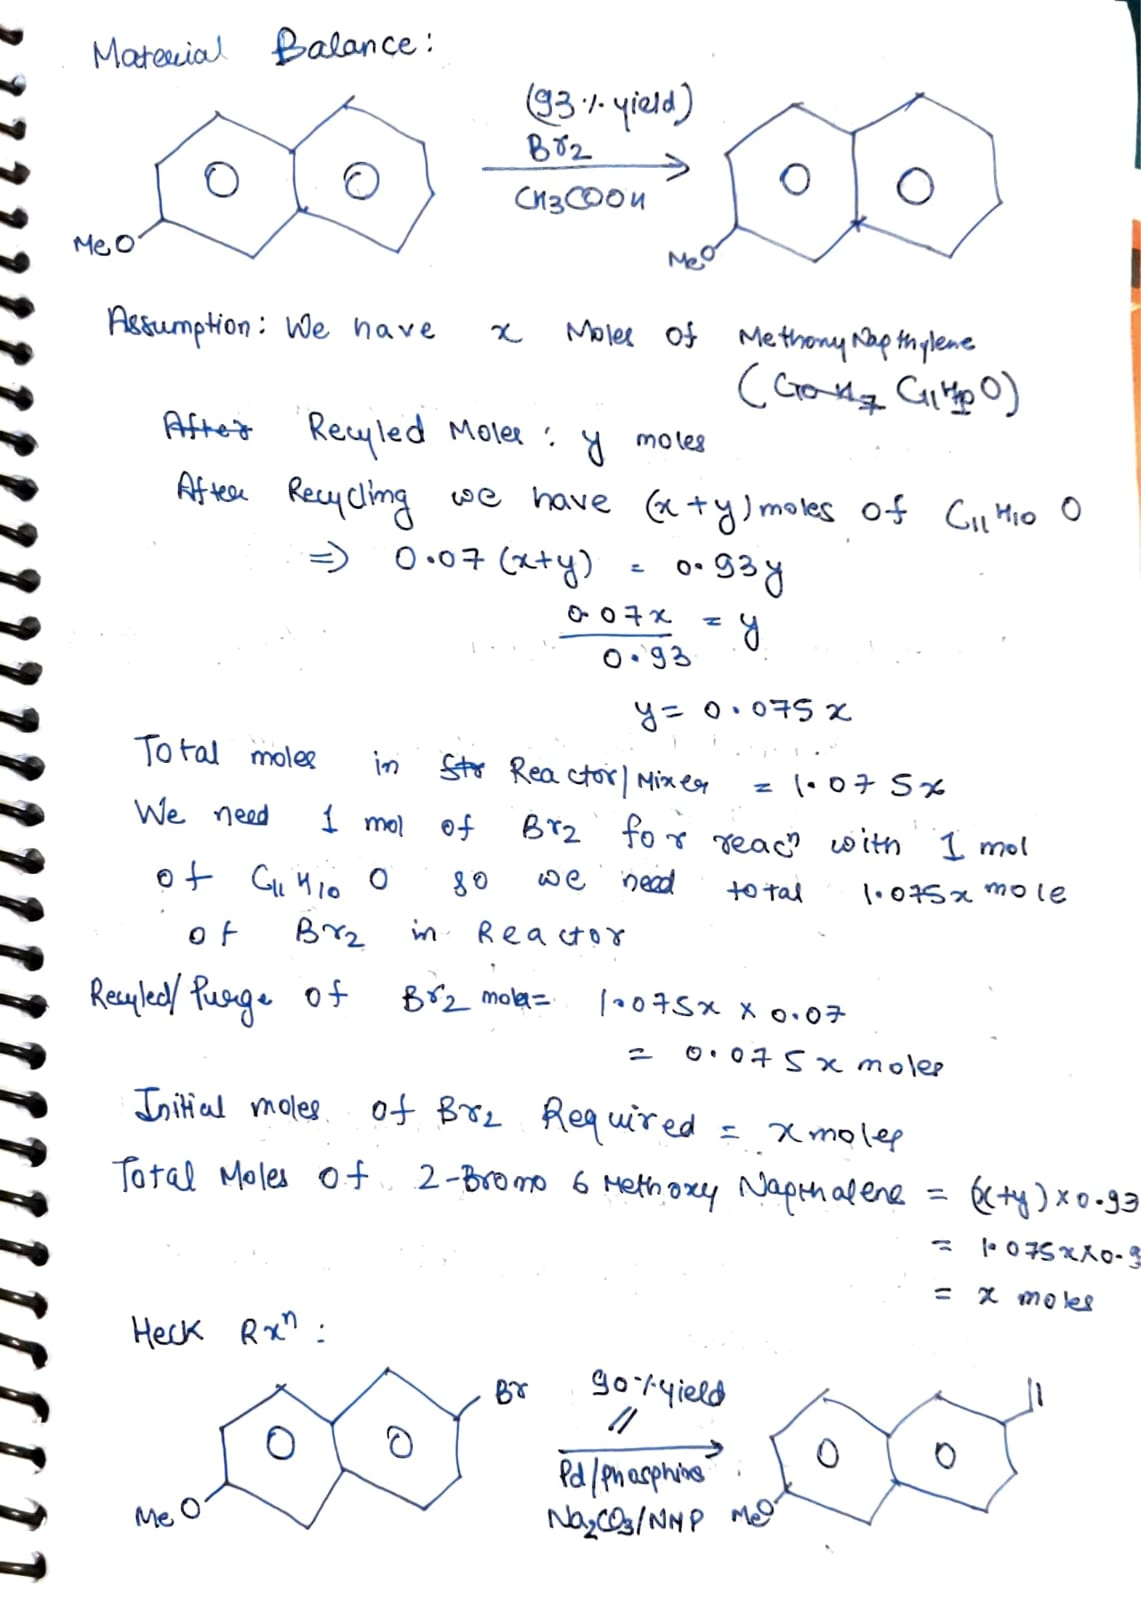 Material Balance:
(93 % yield)
Br2
CH3COOH
MeO
MeO
Assumption: We have x Moles of Methony Napthylene
(C10H7 C11H10O)
After Recyled Moles: y moles
After Recycling we have (x+y) moles of C11H10 O
⇒ 0.07 (x+y) = 0.93y
0.07x / 0.93 = y
y = 0.075 x
Total moles in Str Reactor/Mixer = 1.075x
We need 1 mol of Br2 for reacn with 1 mol
of C11H10 O so we need total 1.075x mole
of Br2 in Reactor
Recyled/Purge of Br2 moles = 1.075x x 0.07
= 0.075x moles
Initial moles of Br2 Required = x moles
Total Moles Of 2-Bromo 6 Methoxy Napthalene = (x+y) x 0.93
= 1.075x x 0.9
= x moles
Heck Rxn:
Br
90% yield
Pd/Phosphine
Na2CO3/NMP
MeO
MeO